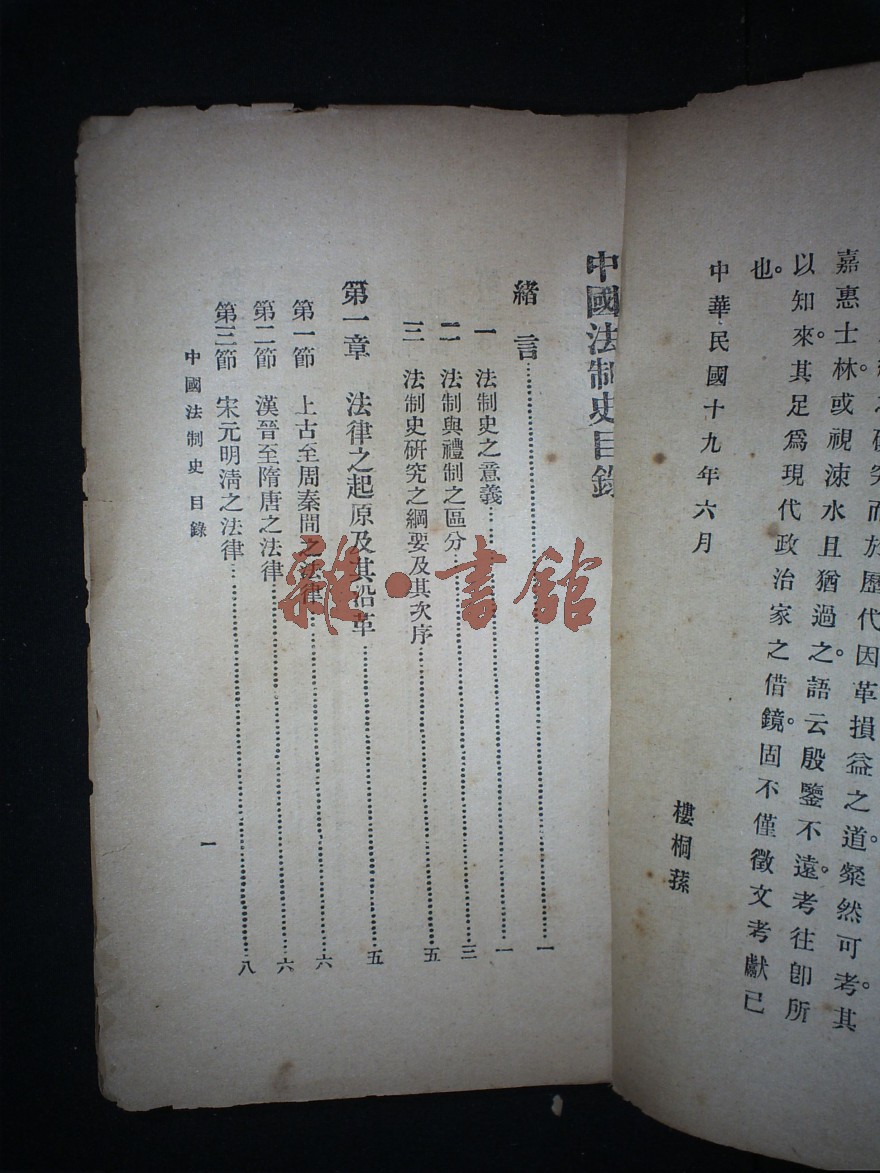 究而於歷代因革損益之道粲然可考。其
嘉惠士林或視涑水且猶過之。語云殷鑒不遠。考往卽所
以知來。其足爲現代政治家之借鏡。固不僅徵文考獻已
也。
中華民國十九年六月
樓桐蓀
中國法制史目錄
緒言……一
一 法制史之意義……一
二 法制與禮制之區分……三
三 法制史研究之綱要及其次序……五
第一章 法律之起原及其沿革……五
第一節 上古至周秦間之法律……六
第二節 漢晉至隋唐之法律……六
第三節 宋元明淸之法律……八
中國法制史 目錄
一
雜·書館